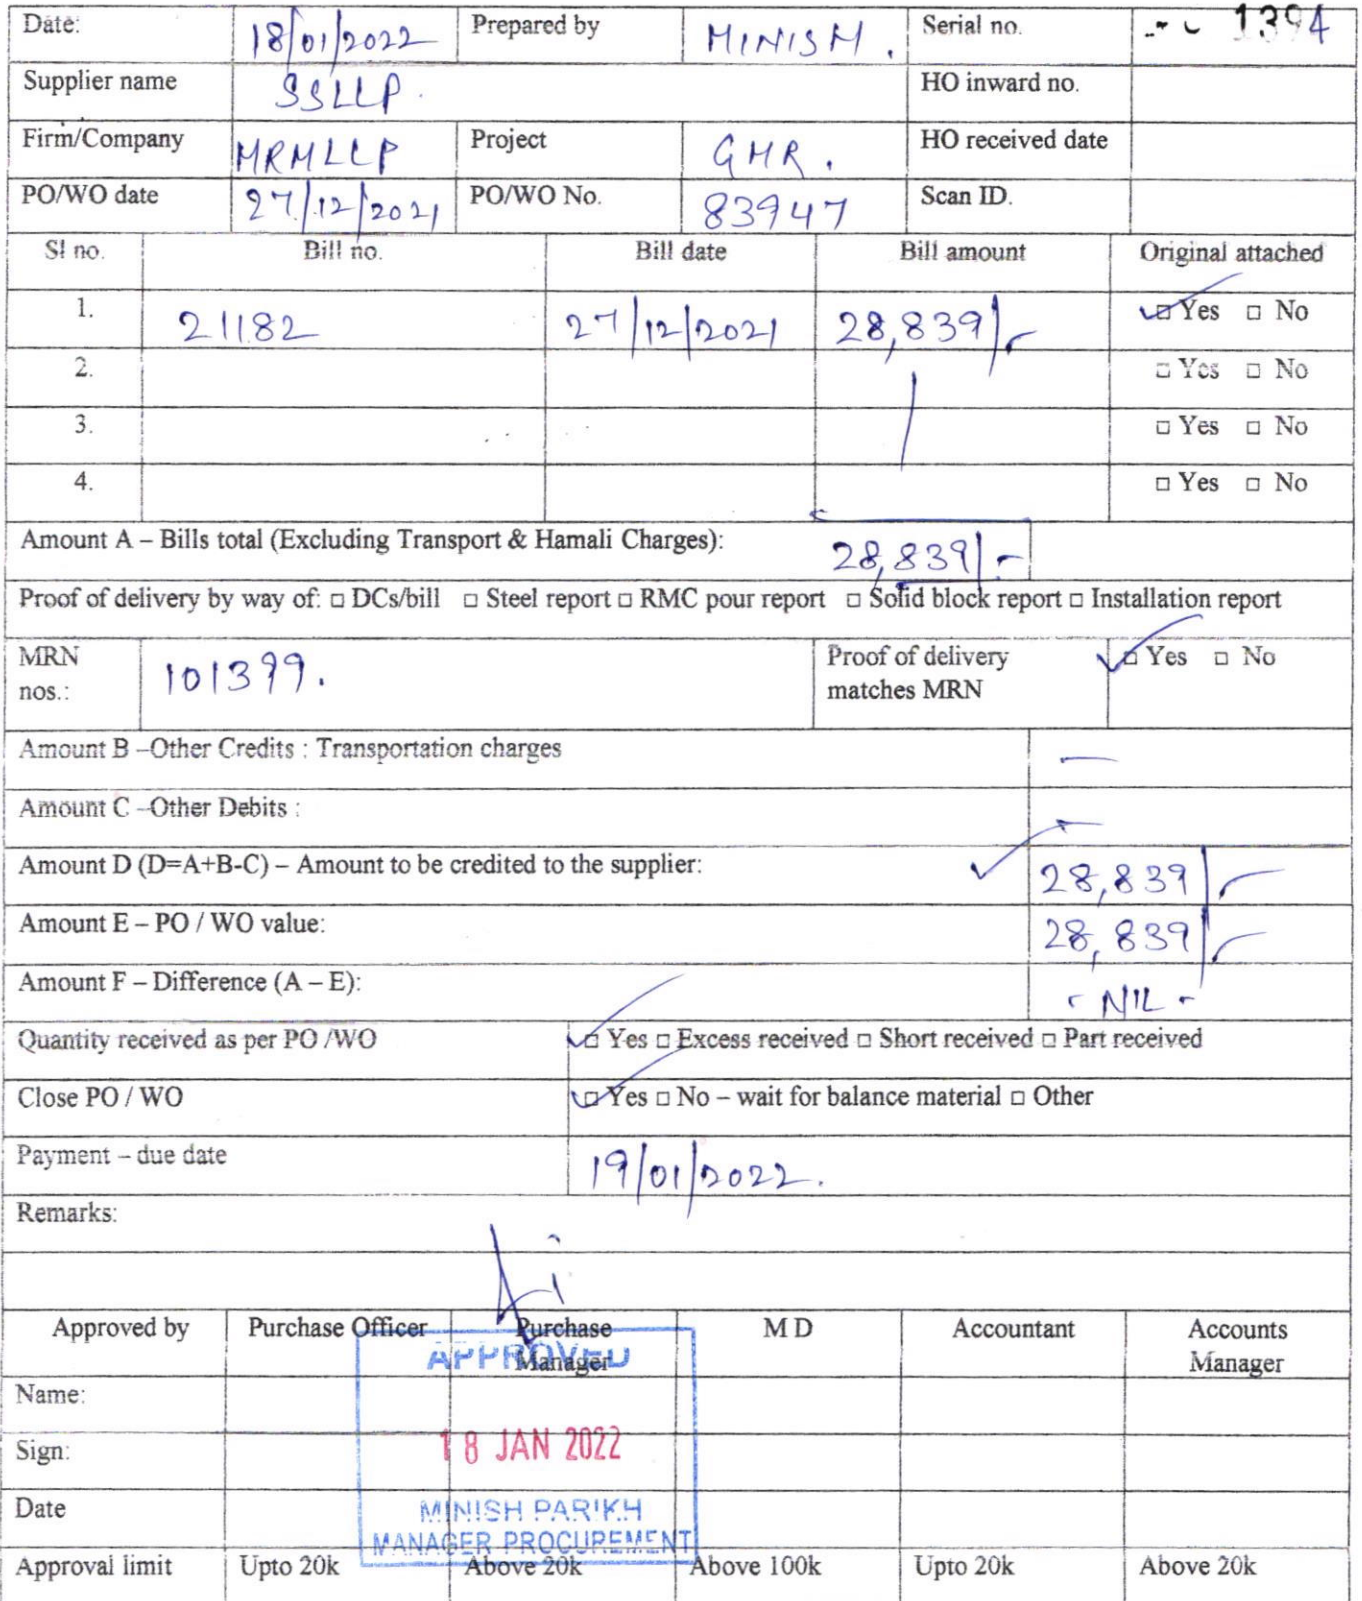 Date: 18/01/2022 Prepared by MINISH. Serial no. 1394
Supplier name SSLLP. HO inward no.
Firm/Company MRMLLP Project GMR. HO received date
PO/WO date 27/12/2021 PO/WO No. 83947 Scan ID.
Sl no. Bill no. Bill date Bill amount Original attached
1. 21182 27/12/2021 28,839/- ☑ Yes □ No
2. □ Yes □ No
3. □ Yes □ No
4. □ Yes □ No
Amount A – Bills total (Excluding Transport & Hamali Charges): 28,839/-
Proof of delivery by way of: □ DCs/bill □ Steel report □ RMC pour report □ Solid block report □ Installation report
MRN nos.: 101399. Proof of delivery matches MRN ☑ Yes □ No
Amount B –Other Credits : Transportation charges —
Amount C –Other Debits : —
Amount D (D=A+B-C) – Amount to be credited to the supplier: 28,839/-
Amount E – PO / WO value: 28,839/-
Amount F – Difference (A – E): - NIL -
Quantity received as per PO /WO ☑ Yes □ Excess received □ Short received □ Part received
Close PO / WO ☑ Yes □ No – wait for balance material □ Other
Payment – due date 19/01/2022.
Remarks:
Approved by Purchase Officer Purchase Manager M D Accountant Accounts Manager
APPROVED
Name:
Sign: 18 JAN 2022
Date MINISH PARIKH
MANAGER PROCUREMENT
Approval limit Upto 20k Above 20k Above 100k Upto 20k Above 20k